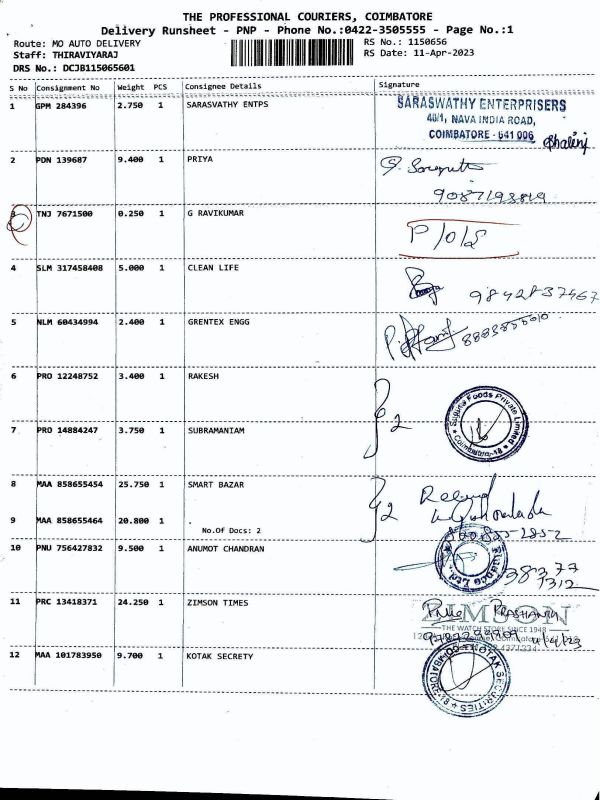 THE PROFESSIONAL COURIERS, COIMBATORE
Delivery Runsheet - PNP - Phone No.:0422-3505555 - Page No.:1
Route: MO AUTO DELIVERY
RS No.: 1150656
Staff: THIRAVIYARAJ
RS Date: 11-Apr-2023
DRS No.: DCJB115065601
S No Consignment No Weight PCS Consignee Details Signature
1 GPM 284396 2.750 1 SARASVATHY ENTPS
SARASWATHY ENTERPRISERS
46/1, NAVA INDIA ROAD,
COIMBATORE - 641 006
Shalini
2 PDN 139687 9.400 1 PRIYA
3 TNJ 7671500 0.250 1 G RAVIKUMAR
P/O/S
4 SLM 317458408 5.000 1 CLEAN LIFE
5 NLM 60434994 2.400 1 GRENTEX ENGG
6 PRO 12248752 3.400 1 RAKESH
2
Suguna Foods Private Limited
Coimbatore-18
7 PRO 14884247 3.750 1 SUBRAMANIAM
8 MAA 858655454 25.750 1 SMART BAZAR
2
9 MAA 858655464 20.800 1
No.Of Docs: 2
10 PNU 756427832 9.500 1 ANUMOT CHANDRAN
11 PRC 13418371 24.250 1 ZIMSON TIMES
ZIMSON
THE WATCH STORE SINCE 1948
12 MAA 101783950 9.700 1 KOTAK SECRETY